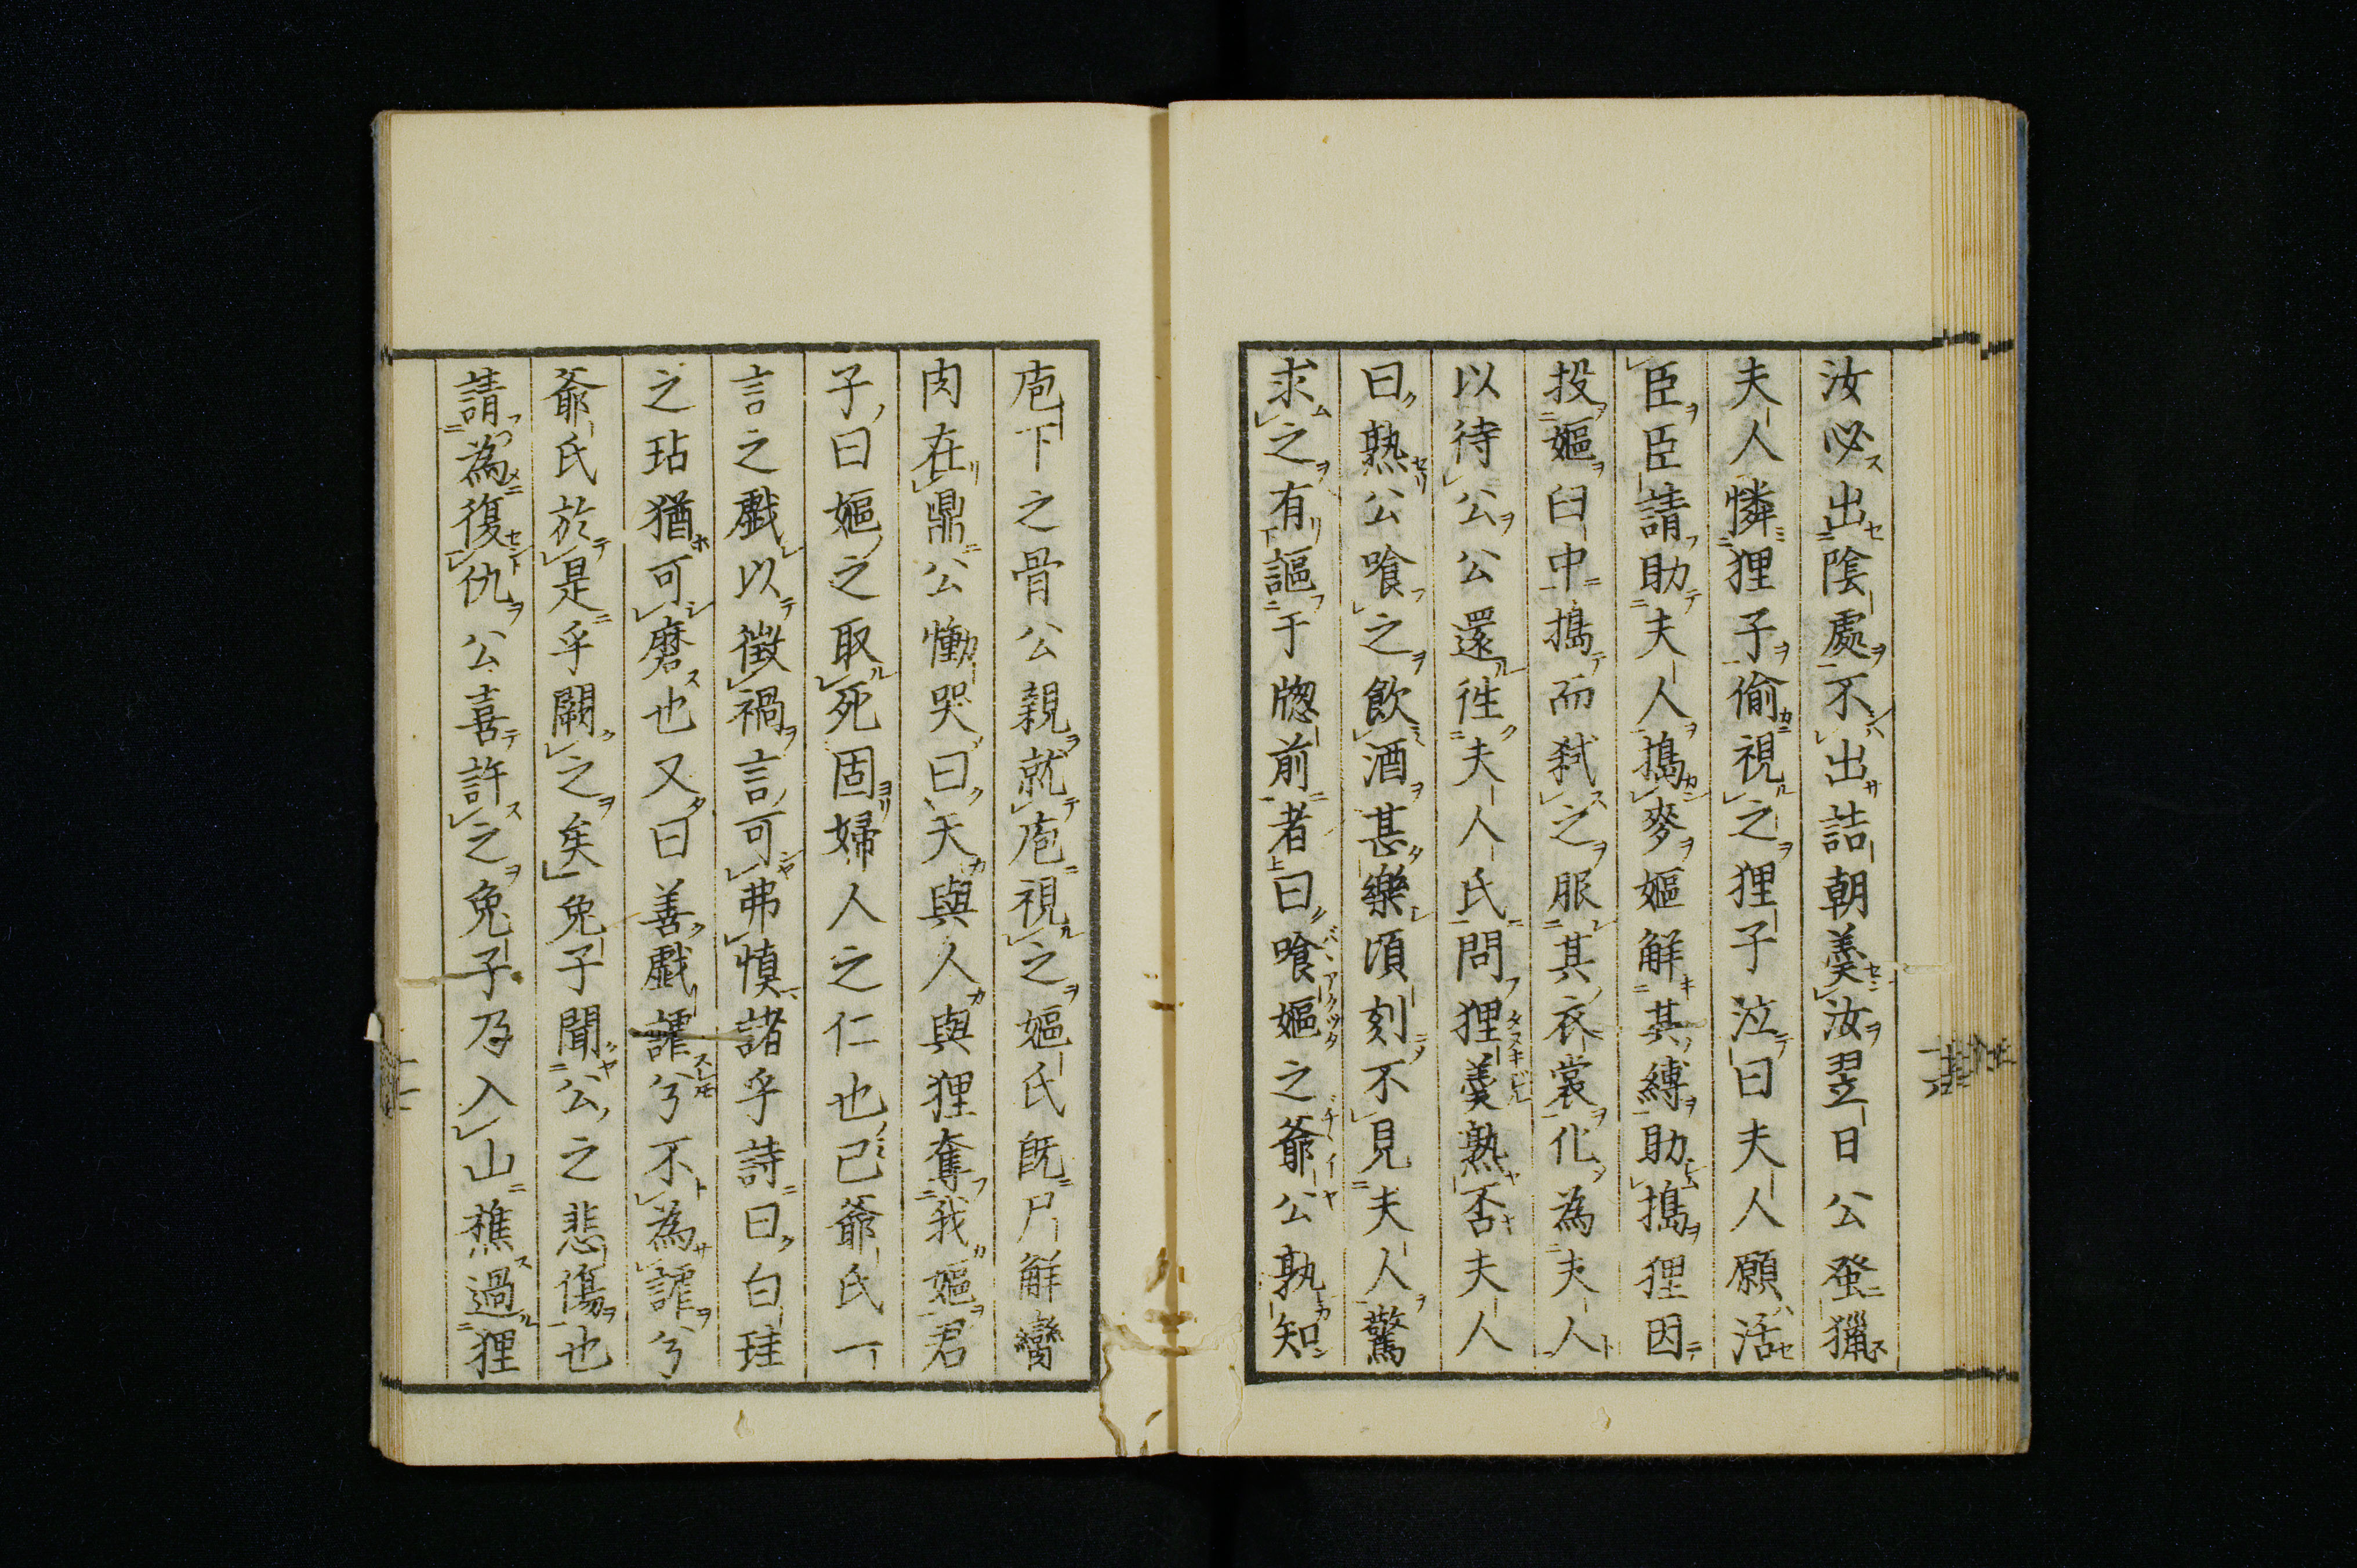 汝必出陰處不出詰朝羹汝翌日公發獵
夫人憐狸子偷視之狸子泣曰夫人願活
臣臣請助夫人搗麥嫗解其縛助搗狸因
投嫗臼中搗而弑之服其衣裳化為夫人
以待公公還徃夫人氏問狸羹熟否夫人
曰熟公喰之飲酒甚樂頃刻不見夫人驚
求之有謳于牕前者曰喰嫗之爺公孰知
庖下之骨公親就庖視之嫗氏既尸解臠
肉在鼎公慟哭曰天與人與狸奪我嫗君
子曰嫗之取死固婦人之仁也已爺氏一
言之戲以徵禍言可弗慎諸乎詩曰白珪
之玷猶可磨也又曰善戲謔兮不為謔兮
爺氏於是乎闕之矣兔子聞公之悲傷也
請為復仇公喜許之兔子乃入山樵過狸